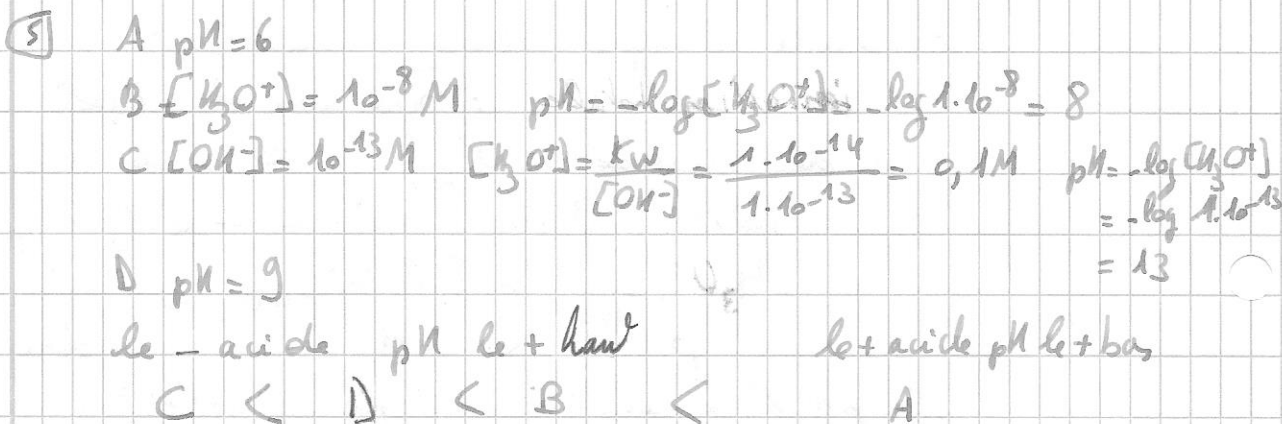 5 A pH = 6
B [H₃O⁺] = 10⁻⁸ M pH = -log[H₃O⁺] = -log 1.10⁻⁸ = 8
C [OH⁻] = 10⁻¹³ M [H₃O⁺] = Kw / [OH⁻] = 1.10⁻¹⁴ / 1.10⁻¹³ = 0,1M pH = -log[H₃O⁺]
= -log 1.10⁻¹³
= 13
D pH = 9
le - acide pH le + haut le + acide pH le + bas
C < D < B < A